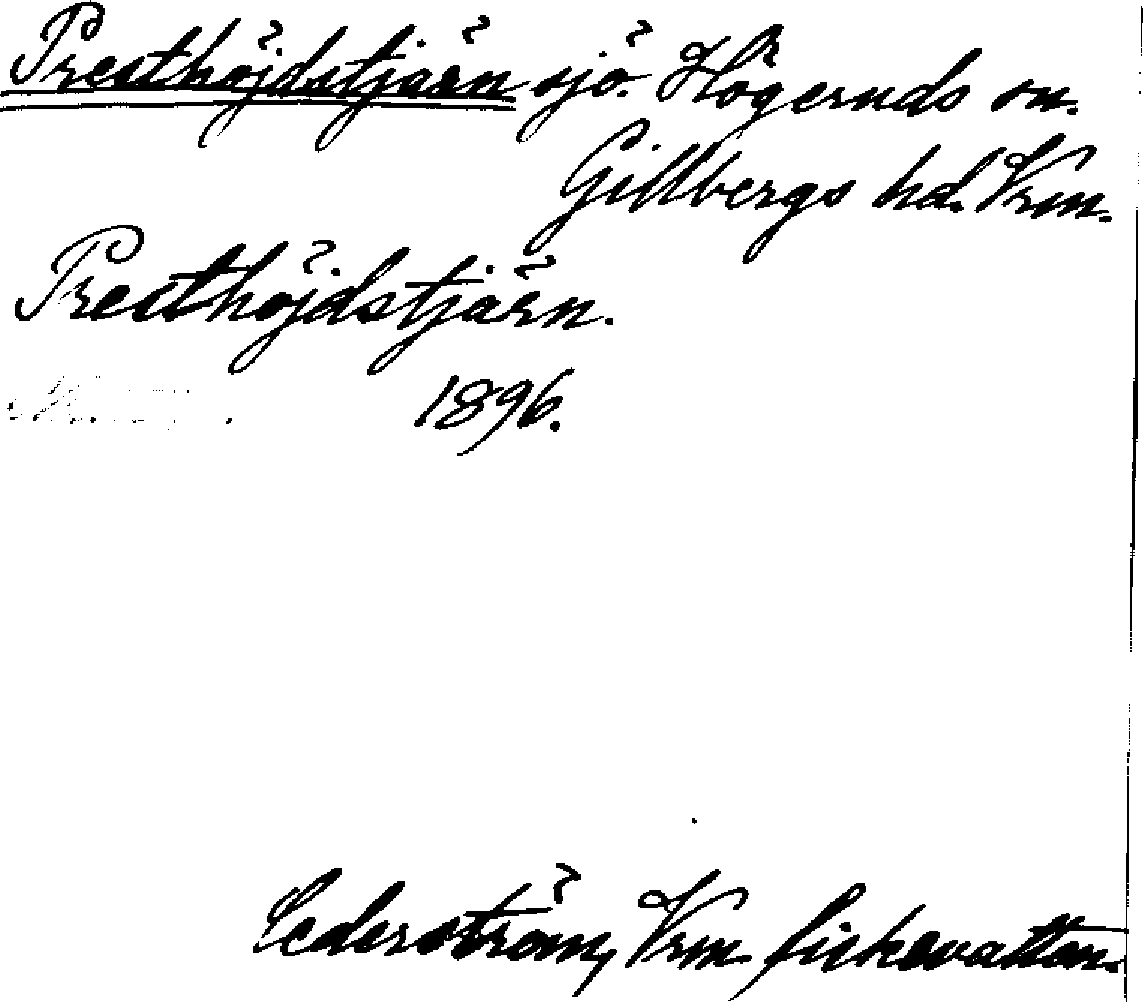 Presthöjdstjärn sjö. Högeruds sn.
Gillbergs hd. Vrm.
Presthöjdstjärn.
1896.
Cederström, Vrm. fiskevatten.